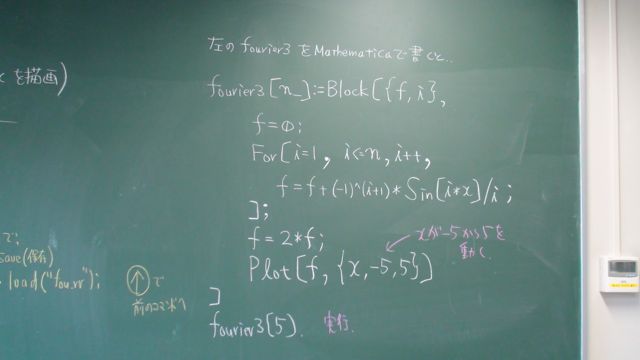 左の fourier3 をMathematicaで書くと..
を描画)
fourier3[n_]:=Block[{f,i},
f=0;
For[i=1, i<=n, i++,
f=f+(-1)^(i+1)*Sin[i*x]/i;
];
f=2*f;
xが-5から5を
動く
Plot[f,{x,-5,5}]
]
fourier3[5]. 実行.
で;
save(保存)
load("fourr");
↑ で
前のコマンドへ